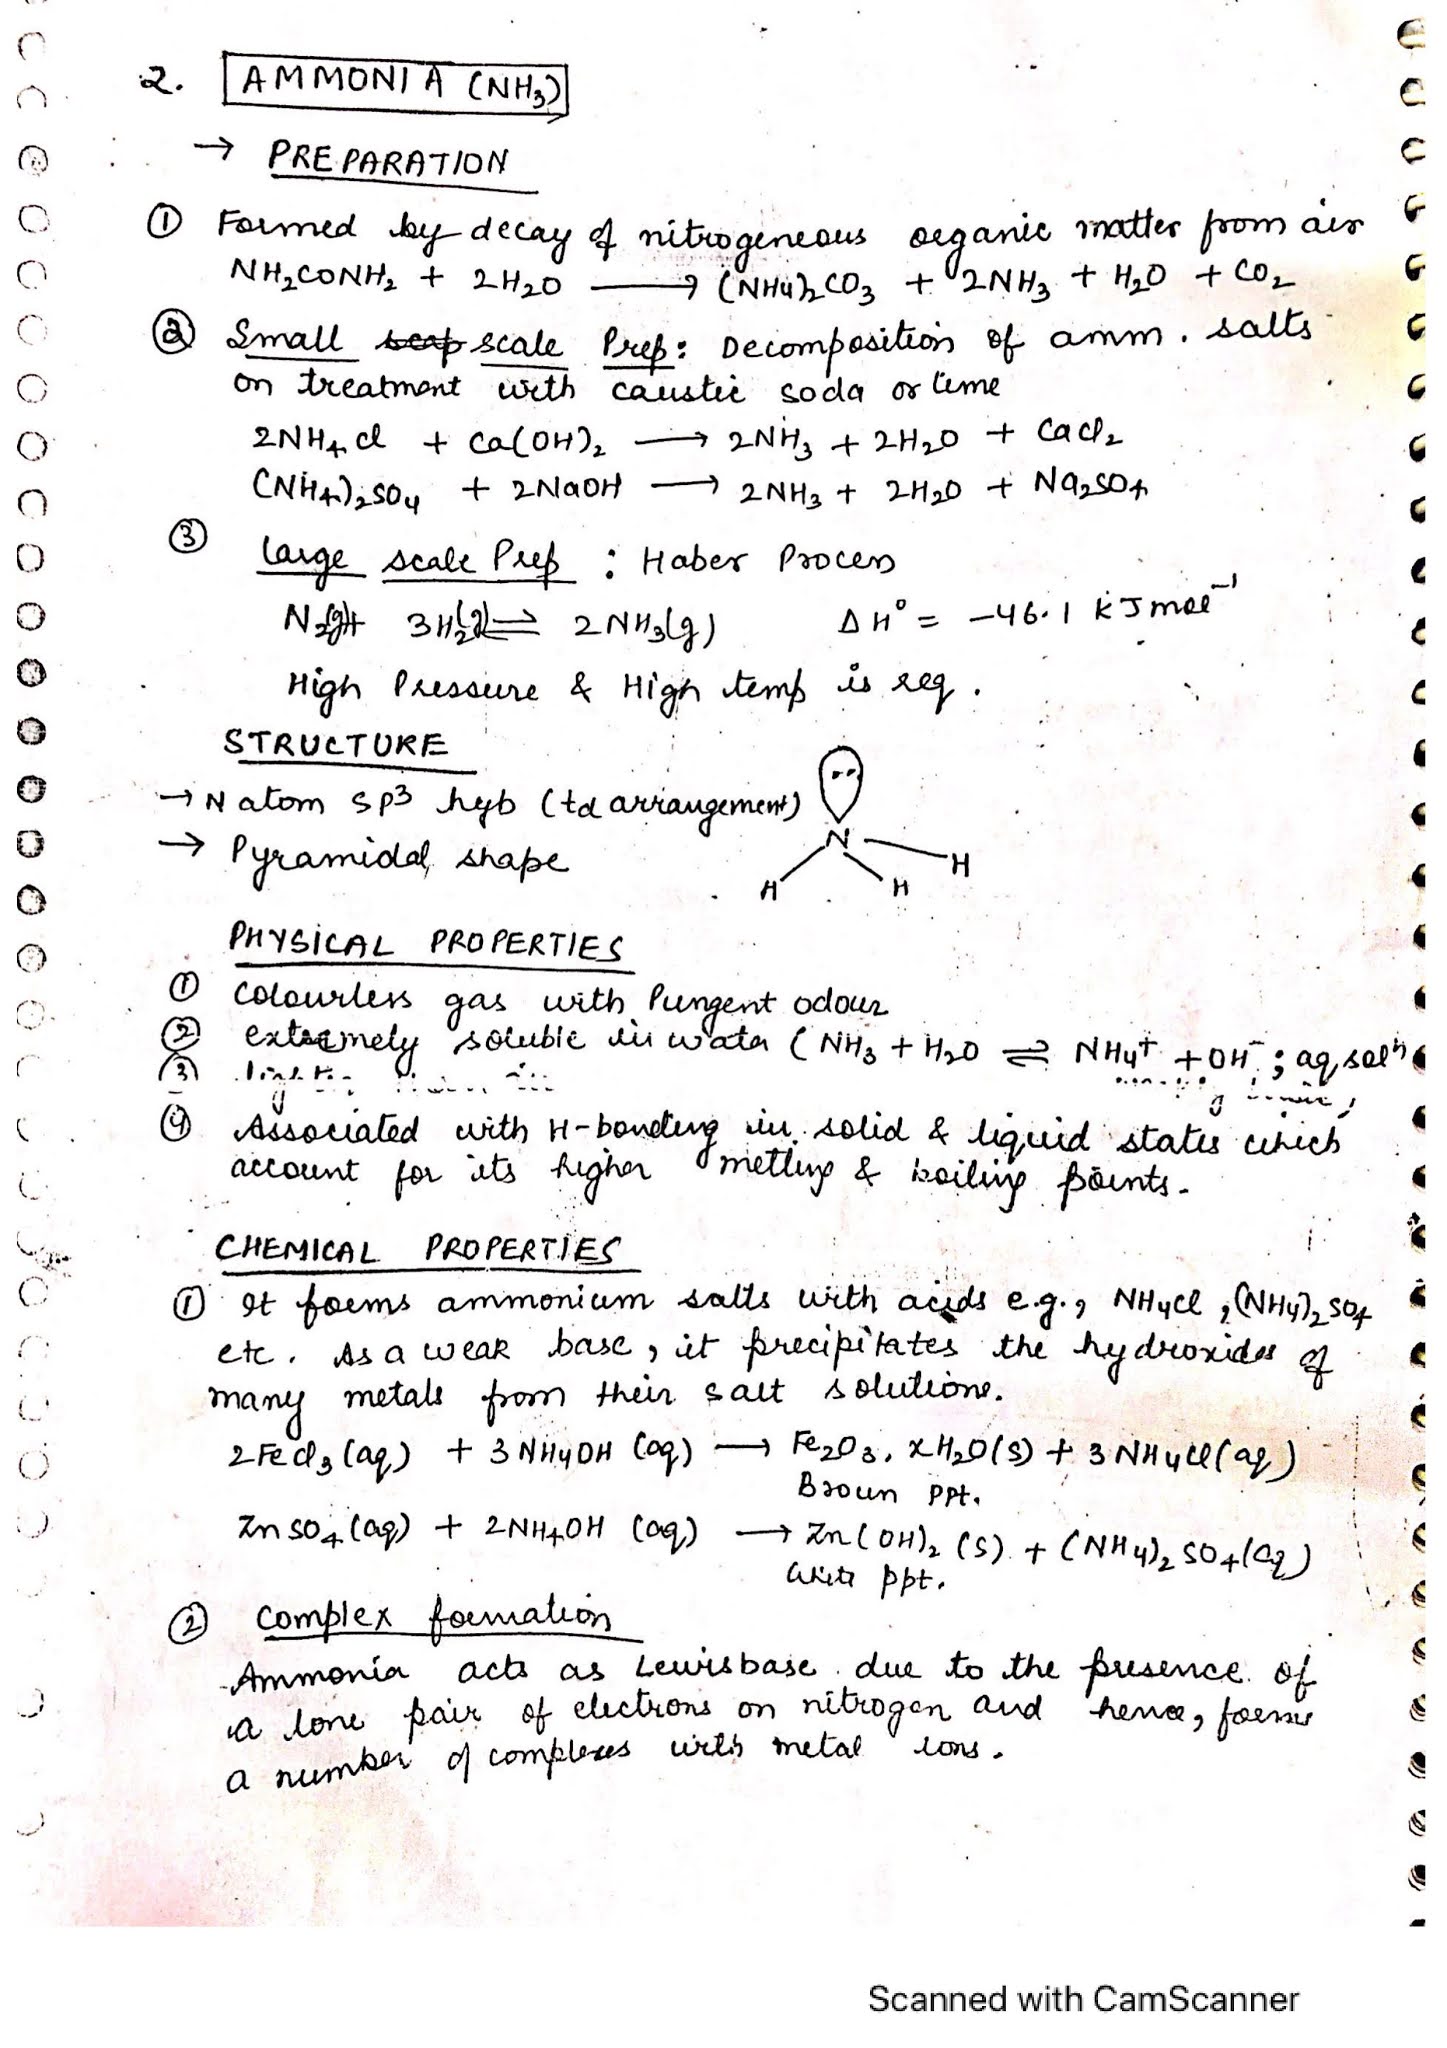 2. AMMONIA (NH₃)
→ PREPARATION
① Formed by decay of nitrogeneous organic matter from air
NH₂CONH₂ + 2H₂O ⟶ (NH4)₂CO₃ + 2NH₃ + H₂O + CO₂
② Small scale Prep: Decomposition of amm. salts
on treatment with caustic soda or lime
2NH₄Cl + Ca(OH)₂ ⟶ 2NH₃ + 2H₂O + CaCl₂
(NH₄)₂SO₄ + 2NaOH ⟶ 2NH₃ + 2H₂O + Na₂SO₄
③ Large scale Prep : Haber Process
N₂(g)+ 3H₂(g) ⇌ 2NH₃(g) ΔH° = -46.1 kJmol⁻¹
High Pressure & High temp is req.
STRUCTURE
→ N atom sp³ hyb (td arrangement)
→ Pyramidal shape
N
H H H
PHYSICAL PROPERTIES
① Colourless gas with Pungent odour
② extremely soluble in water (NH₃ + H₂O ⇌ NH₄⁺ + OH⁻; aq solⁿ
③
④ Associated with H-bonding in solid & liquid states which
account for its higher melting & boiling points.
CHEMICAL PROPERTIES
① It forms ammonium salts with acids e.g., NH₄Cl, (NH₄)₂SO₄
etc. As a weak base, it precipitates the hydroxides of
many metals from their salt solutions.
2FeCl₃(aq) + 3NH₄OH (aq) ⟶ Fe₂O₃. xH₂O(s) + 3NH₄Cl(aq)
Brown ppt.
ZnSO₄(aq) + 2NH₄OH (aq) ⟶ Zn(OH)₂ (s) + (NH₄)₂SO₄(aq)
White ppt.
② Complex formation
Ammonia acts as Lewis base due to the presence of
a lone pair of electrons on nitrogen and hence, forms
a number of complexes with metal ions.
Scanned with CamScanner